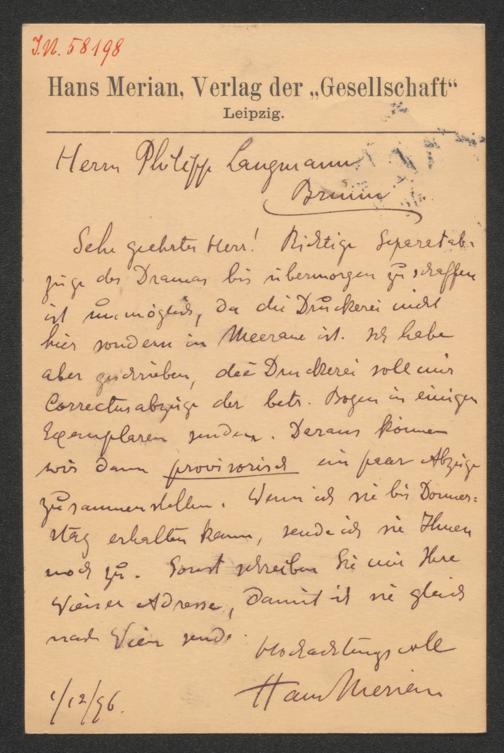 J.N. 58198
Hans Merian, Verlag der „Gesellschaft“
Leipzig.
Herrn Philipp Langmann
Brünn
Sehr geehrter Herr! Richtige Separatab-
züge des Dramas bis übermorgen zu schaffen
ist unmöglich, da die Druckerei nicht
hier sondern in Meerane ist. Ich habe
aber geschrieben, die Druckerei soll mir
Correcturabzüge der betr. Bogen in einigen
Exemplaren senden. Daraus können
wir dann provisorisch ein paar Abzüge
zusammenstellen. Wenn ich sie bis Donners-
tag erhalten kann, sende ich sie Ihnen
noch zu. Sonst schreiben Sie mir Ihre
Wiener Adresse, damit ich sie gleich
nach Wien sende.
Hochachtungsvoll
Hans Merian
1/12/96.